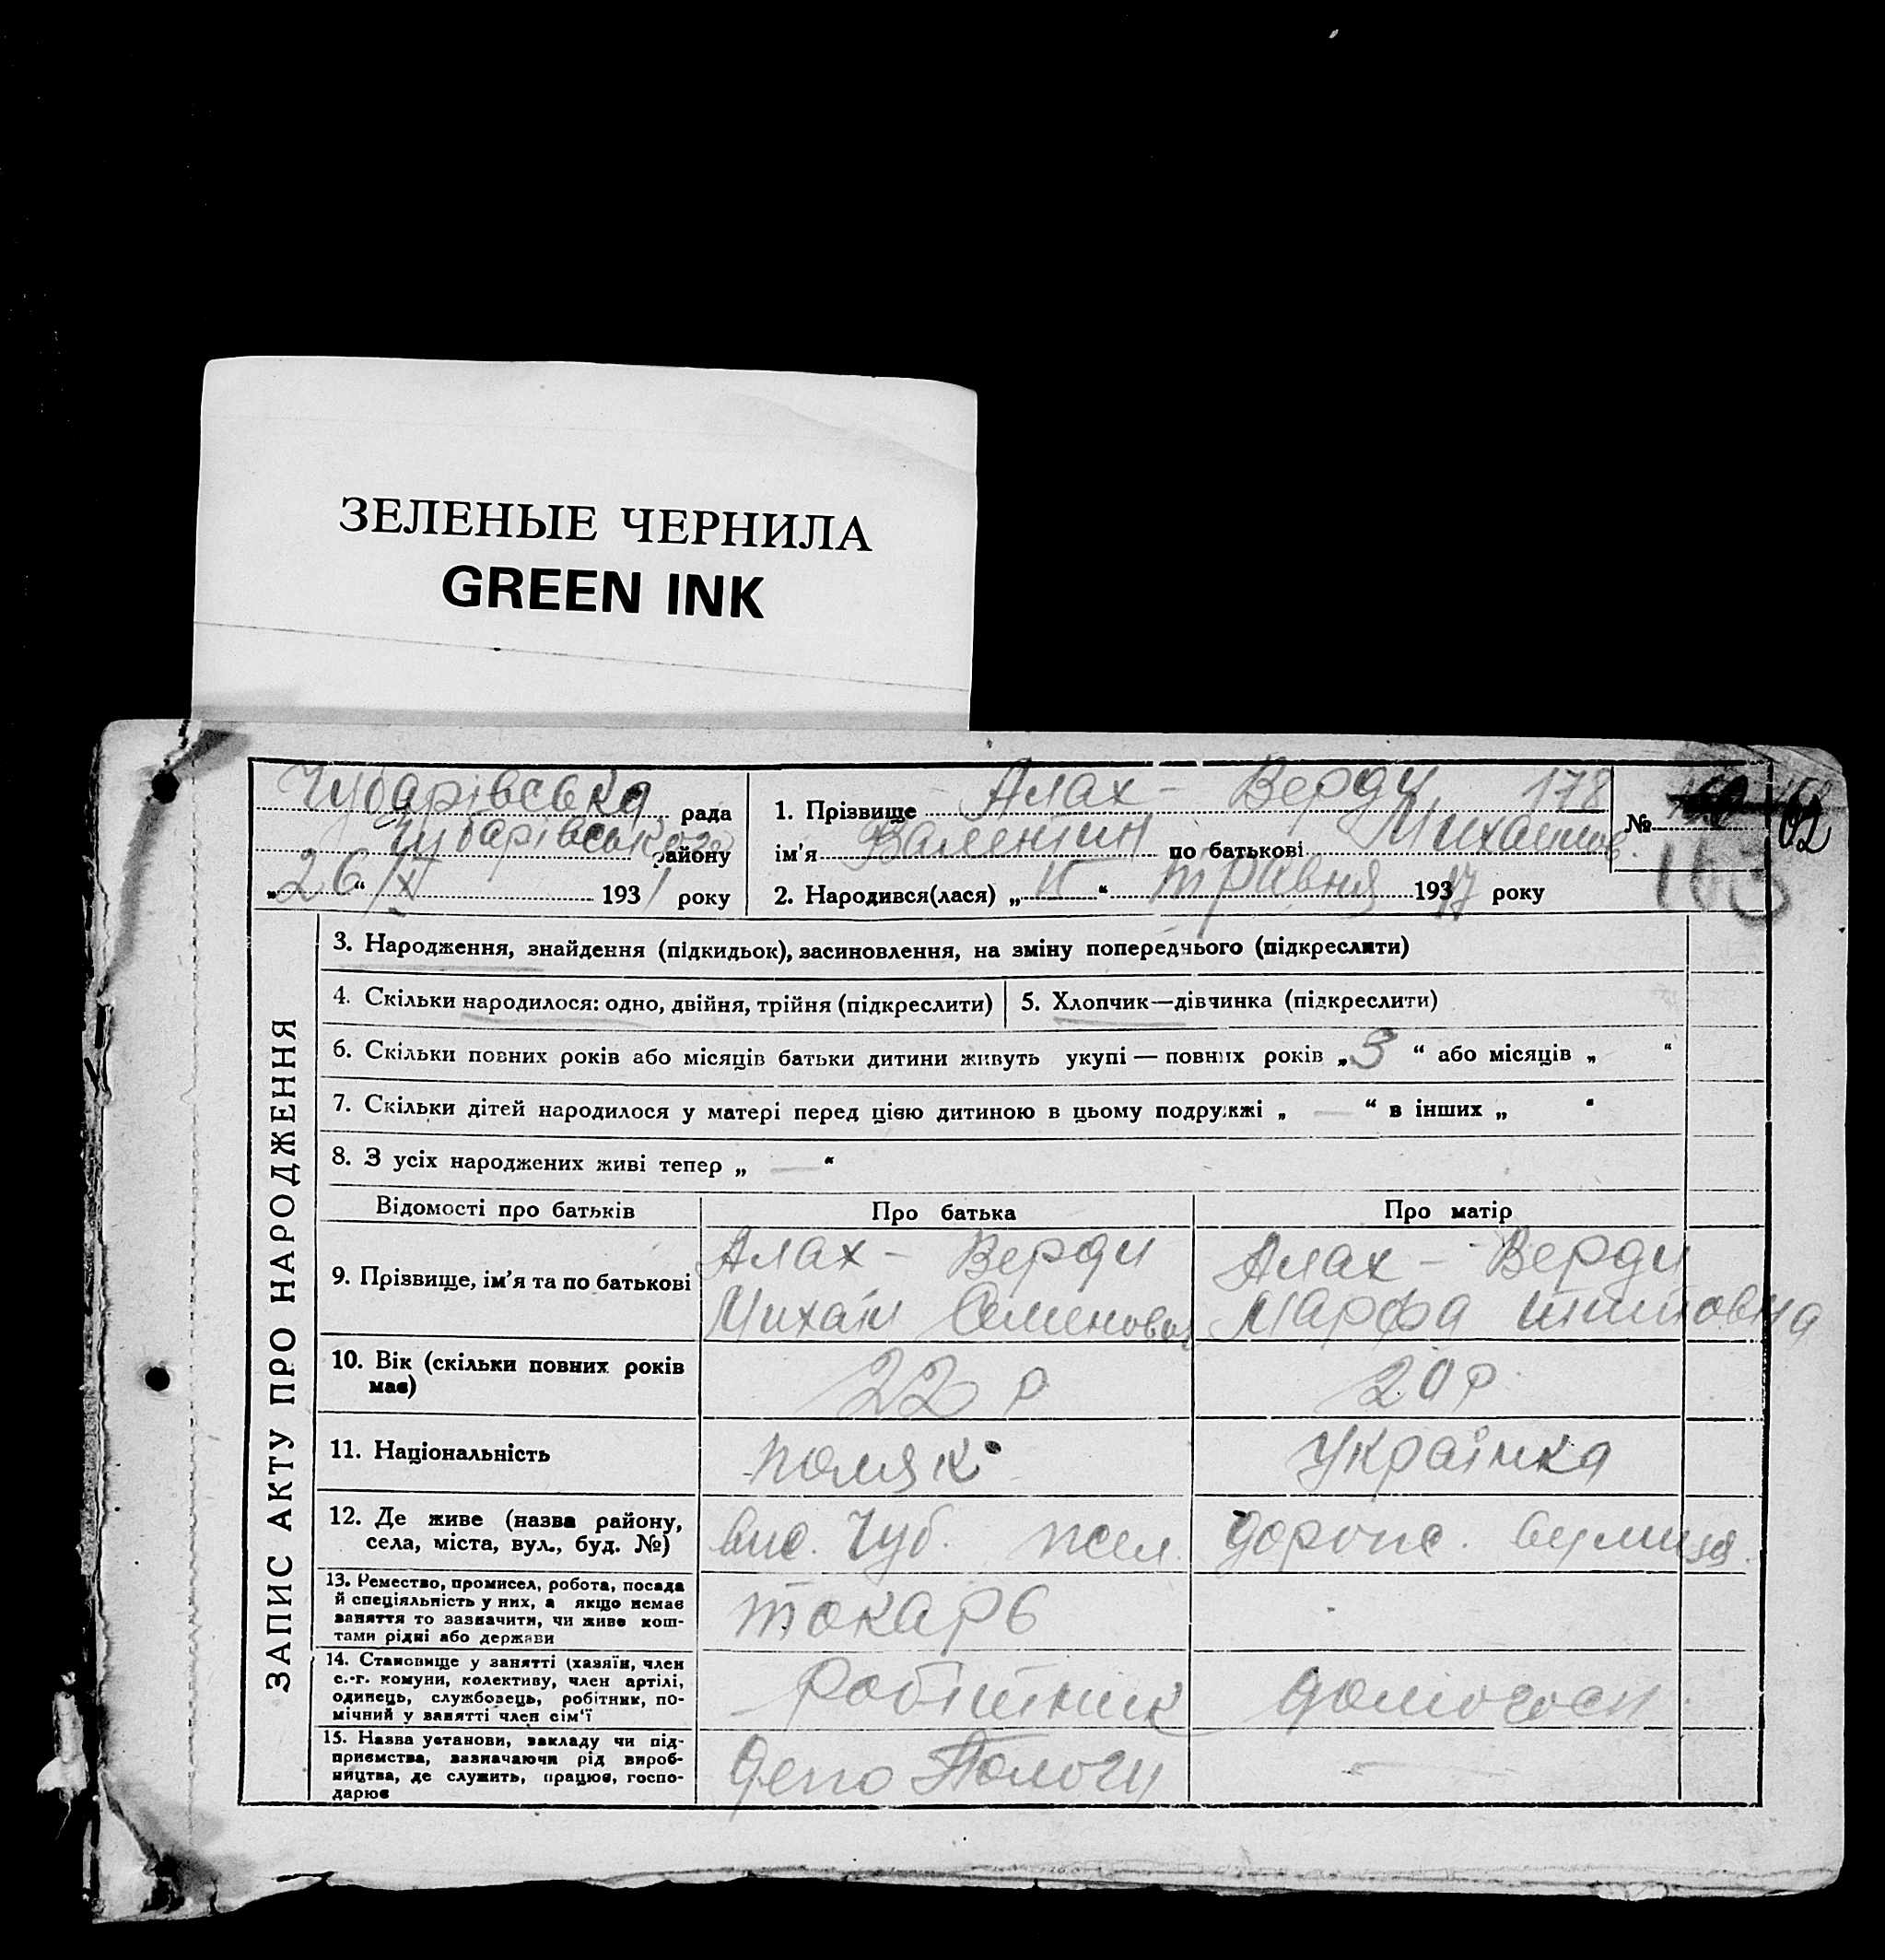 ЗЕЛЕНЫЕ ЧЕРНИЛА
GREEN INK
Чубарівська рада
Чубарівського району
„26“ 1931 року
1. Прізвище Алах - Верди 178
ім'я Валентин по батькові
2. Народився(лася) „ “ травня 193 року
№ 162
163
ЗАПИС АКТУ ПРО НАРОДЖЕННЯ
3. Народження, знайдення (підкидьок), засиновлення, на зміну попереднього (підкреслити)
4. Скільки народилося: одно, двійня, трійня (підкреслити)
5. Хлопчик—дівчинка (підкреслити)
6. Скільки повних років або місяців батьки дитини живуть укупі — повних років „3“ або місяців „ “
7. Скільки дітей народилося у матері перед цією дитиною в цьому подружжі „ — “ в інших „ “
8. З усіх народжених живі тепер „ — “
Відомості про батьків
Про батька
Про матір
9. Прізвище, ім'я та по батькові
Алах - Верди
Михаіл Семенович
Алах - Верди
Марфа
10. Вік (скільки повних років
має)
22 р
20 р.
11. Національність
поляк
Українка
12. Де живе (назва району,
села, міста, вул., буд. №)
Чуб.
вулиця.
13. Ремество, промисел, робота, посада
й спеціяльність у них, а якщо немає
заняття то зазначити, чи живе кош-
тами рідні або держави
токарь
14. Становище у занятті (хазяїн, член
с.-г. комуни, колективу, член артілі,
одинець, службовець, робітник, по-
мічний у занятті член сім'ї
Робітник
домогосп.
15. Назва установи, закладу чи під-
приємства, зазначаючи рід вироб-
ництва, де служить, працює, госпо-
дарює
Депо Пологи
—